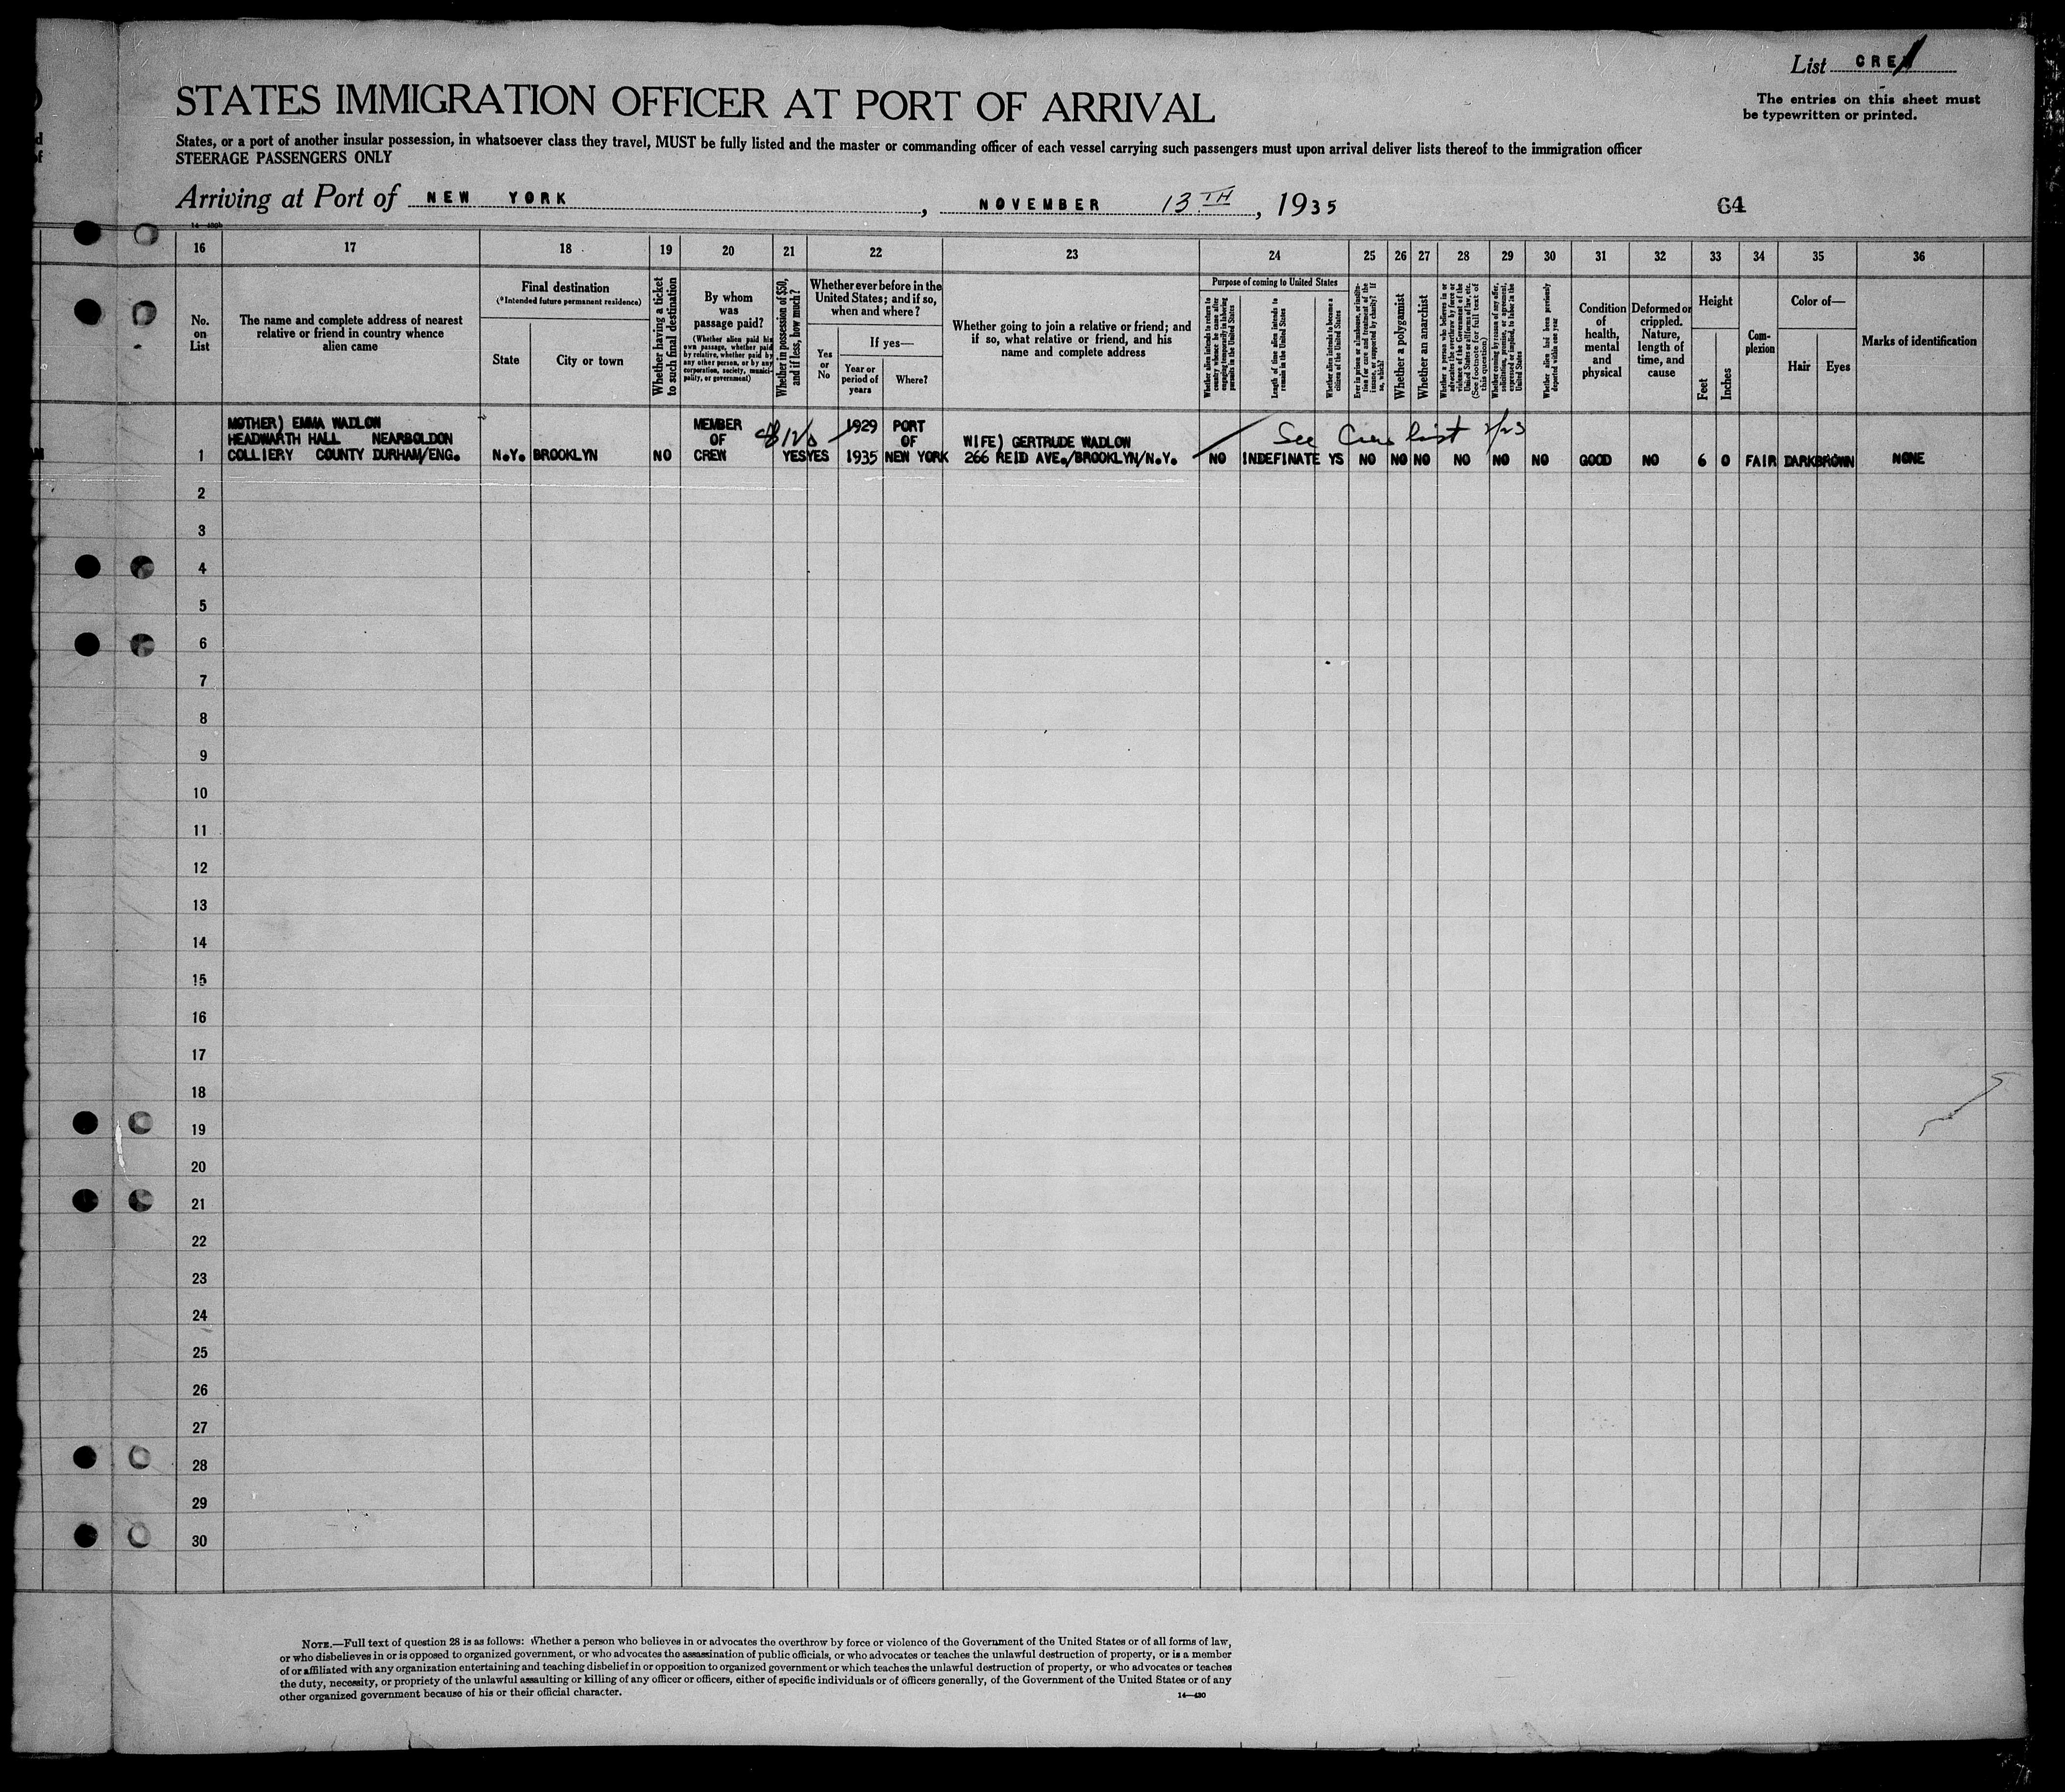 List CREW
The entries on this sheet must
be typewritten or printed.
STATES IMMIGRATION OFFICER AT PORT OF ARRIVAL
States, or a port of another insular possession, in whatsoever class they travel, MUST be fully listed and the master or commanding officer of each vessel carrying such passengers must upon arrival deliver lists thereof to the immigration officer
STEERAGE PASSENGERS ONLY
Arriving at Port of NEW YORK, NOVEMBER 13TH, 1935
64
16 17 18 19 20 21 22 23 24 25 26 27 28 29 30 31 32 33 34 35 36
No.
on
List
The name and complete address of nearest
relative or friend in country whence
alien came
Final destination
(*Intended future permanent residence)
State
City or town
Whether having a ticket
to such final destination
By whom
was
passage paid?
(Whether alien paid his
own passage, whether paid
by relative, whether paid by
any other person, or by any
corporation, society, munici-
pality, or government)
Whether in possession of $50,
and if less, how much?
Whether ever before in the
United States; and if so,
when and where?
Yes
or
No
If yes—
Year or
period of
years
Where?
Whether going to join a relative or friend; and
if so, what relative or friend, and his
name and complete address
Purpose of coming to United States
Whether alien intends to return to
country whence he came after
engaging temporarily in laboring
pursuits in the United States
Length of time alien intends to
remain in the United States
Whether alien intends to become a
citizen of the United States
Ever in prison or almshouse, or institu-
tion for care and treatment of the
insane, or supported by charity? If
so, which?
Whether a polygamist
Whether an anarchist
Whether a person who believes in or
advocates the overthrow by force or
violence of the Government of the
United States or all forms of law, etc.
(See footnote for full text of
this question)
Whether coming by reason of any offer,
solicitation, promise, or agreement,
expressed or implied, to labor in the
United States
Whether alien had been previously
deported within one year
Condition
of
health,
mental
and
physical
Deformed or
crippled.
Nature,
length of
time, and
cause
Height
Feet
Inches
Com-
plexion
Color of—
Hair
Eyes
Marks of identification
MOTHER) EMMA WADLOW MEMBER 1929 PORT See Crew list
HEADWARTH HALL NEARBOLDON OF OF WIFE) GERTRUDE WADLOW
1 COLLIERY COUNTY DURHAM/ENG. N.Y. BROOKLYN NO CREW YES YES 1935 NEW YORK 266 REID AVE./BROOKLYN/N.Y. NO INDEFINATE YS NO NO NO NO NO NO GOOD NO 6 0 FAIR DARK BROWN NONE
2
3
4
5
6
7
8
9
10
11
12
13
14
15
16
17
18
19
20
21
22
23
24
25
26
27
28
29
30
NOTE.—Full text of question 28 is as follows: Whether a person who believes in or advocates the overthrow by force or violence of the Government of the United States or of all forms of law,
or who disbelieves in or is opposed to organized government, or who advocates the assassination of public officials, or who advocates or teaches the unlawful destruction of property, or is a member
of or affiliated with any organization entertaining and teaching disbelief in or opposition to organized government or which teaches the unlawful destruction of property, or who advocates or teaches
the duty, necessity, or propriety of the unlawful assaulting or killing of any officer or officers, either of specific individuals or of officers generally, of the Government of the United States or of any
other organized government because of his or their official character.
14—430